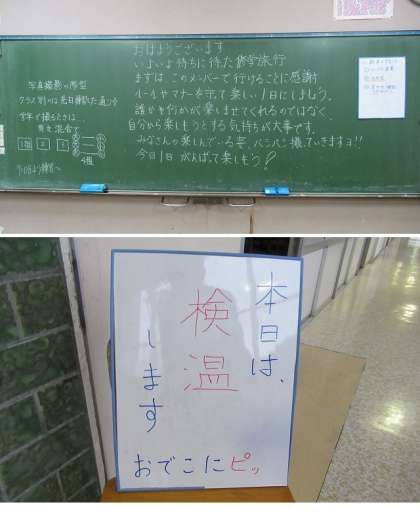 おはようございます
いよいよ待ちに待た修学旅行
まずは このメンバーで行けることに感謝
ルールやマナーを守って楽しい1日にしましょう。
誰かや何かが楽しませてくれるのではなく、
自分から楽しもうとする気持ちが大事です。
みなさんの楽しんでいる姿、バンバン撮っていきますヨ!!
今日1日 がんばって楽しもう!
写真撮影の隊型
クラス別のは 先日練習した通り
学年で撮るときは
男女混合で
1組 2 3
4組
本日は、
検温
します
おでこにピッ